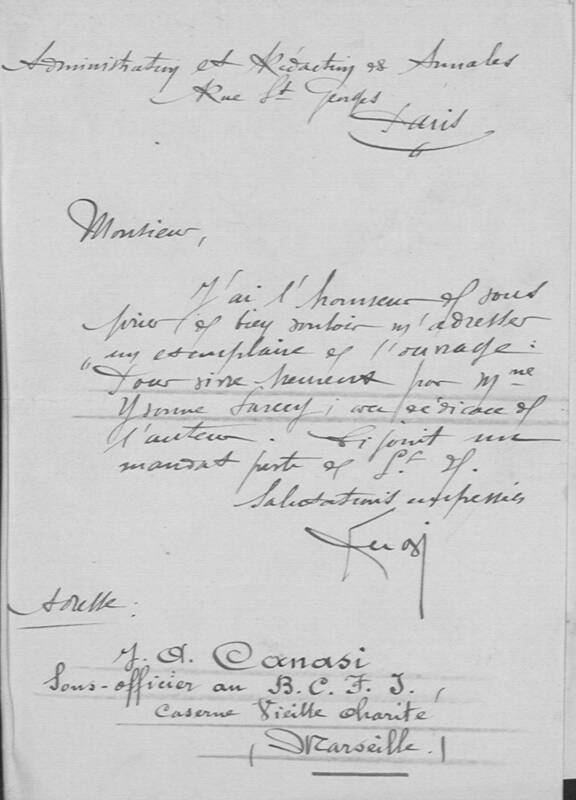 Administration et Rédaction des Annales
Rue St Georges
Paris
Monsieur,
J'ai l'honneur de vous
prier de bien vouloir m'adresser
un exemplaire de l'ouvrage :
Pour vivre heureux par Mme
Yvonne Sarcey ; avec dédicace de
l'auteur. Ci joint un
mandat poste de
Salutations empressées
Adresse :
J. A. Canasi
Sous-officier au B. C. F. I.,
Caserne Vieille Charité
( Marseille. )